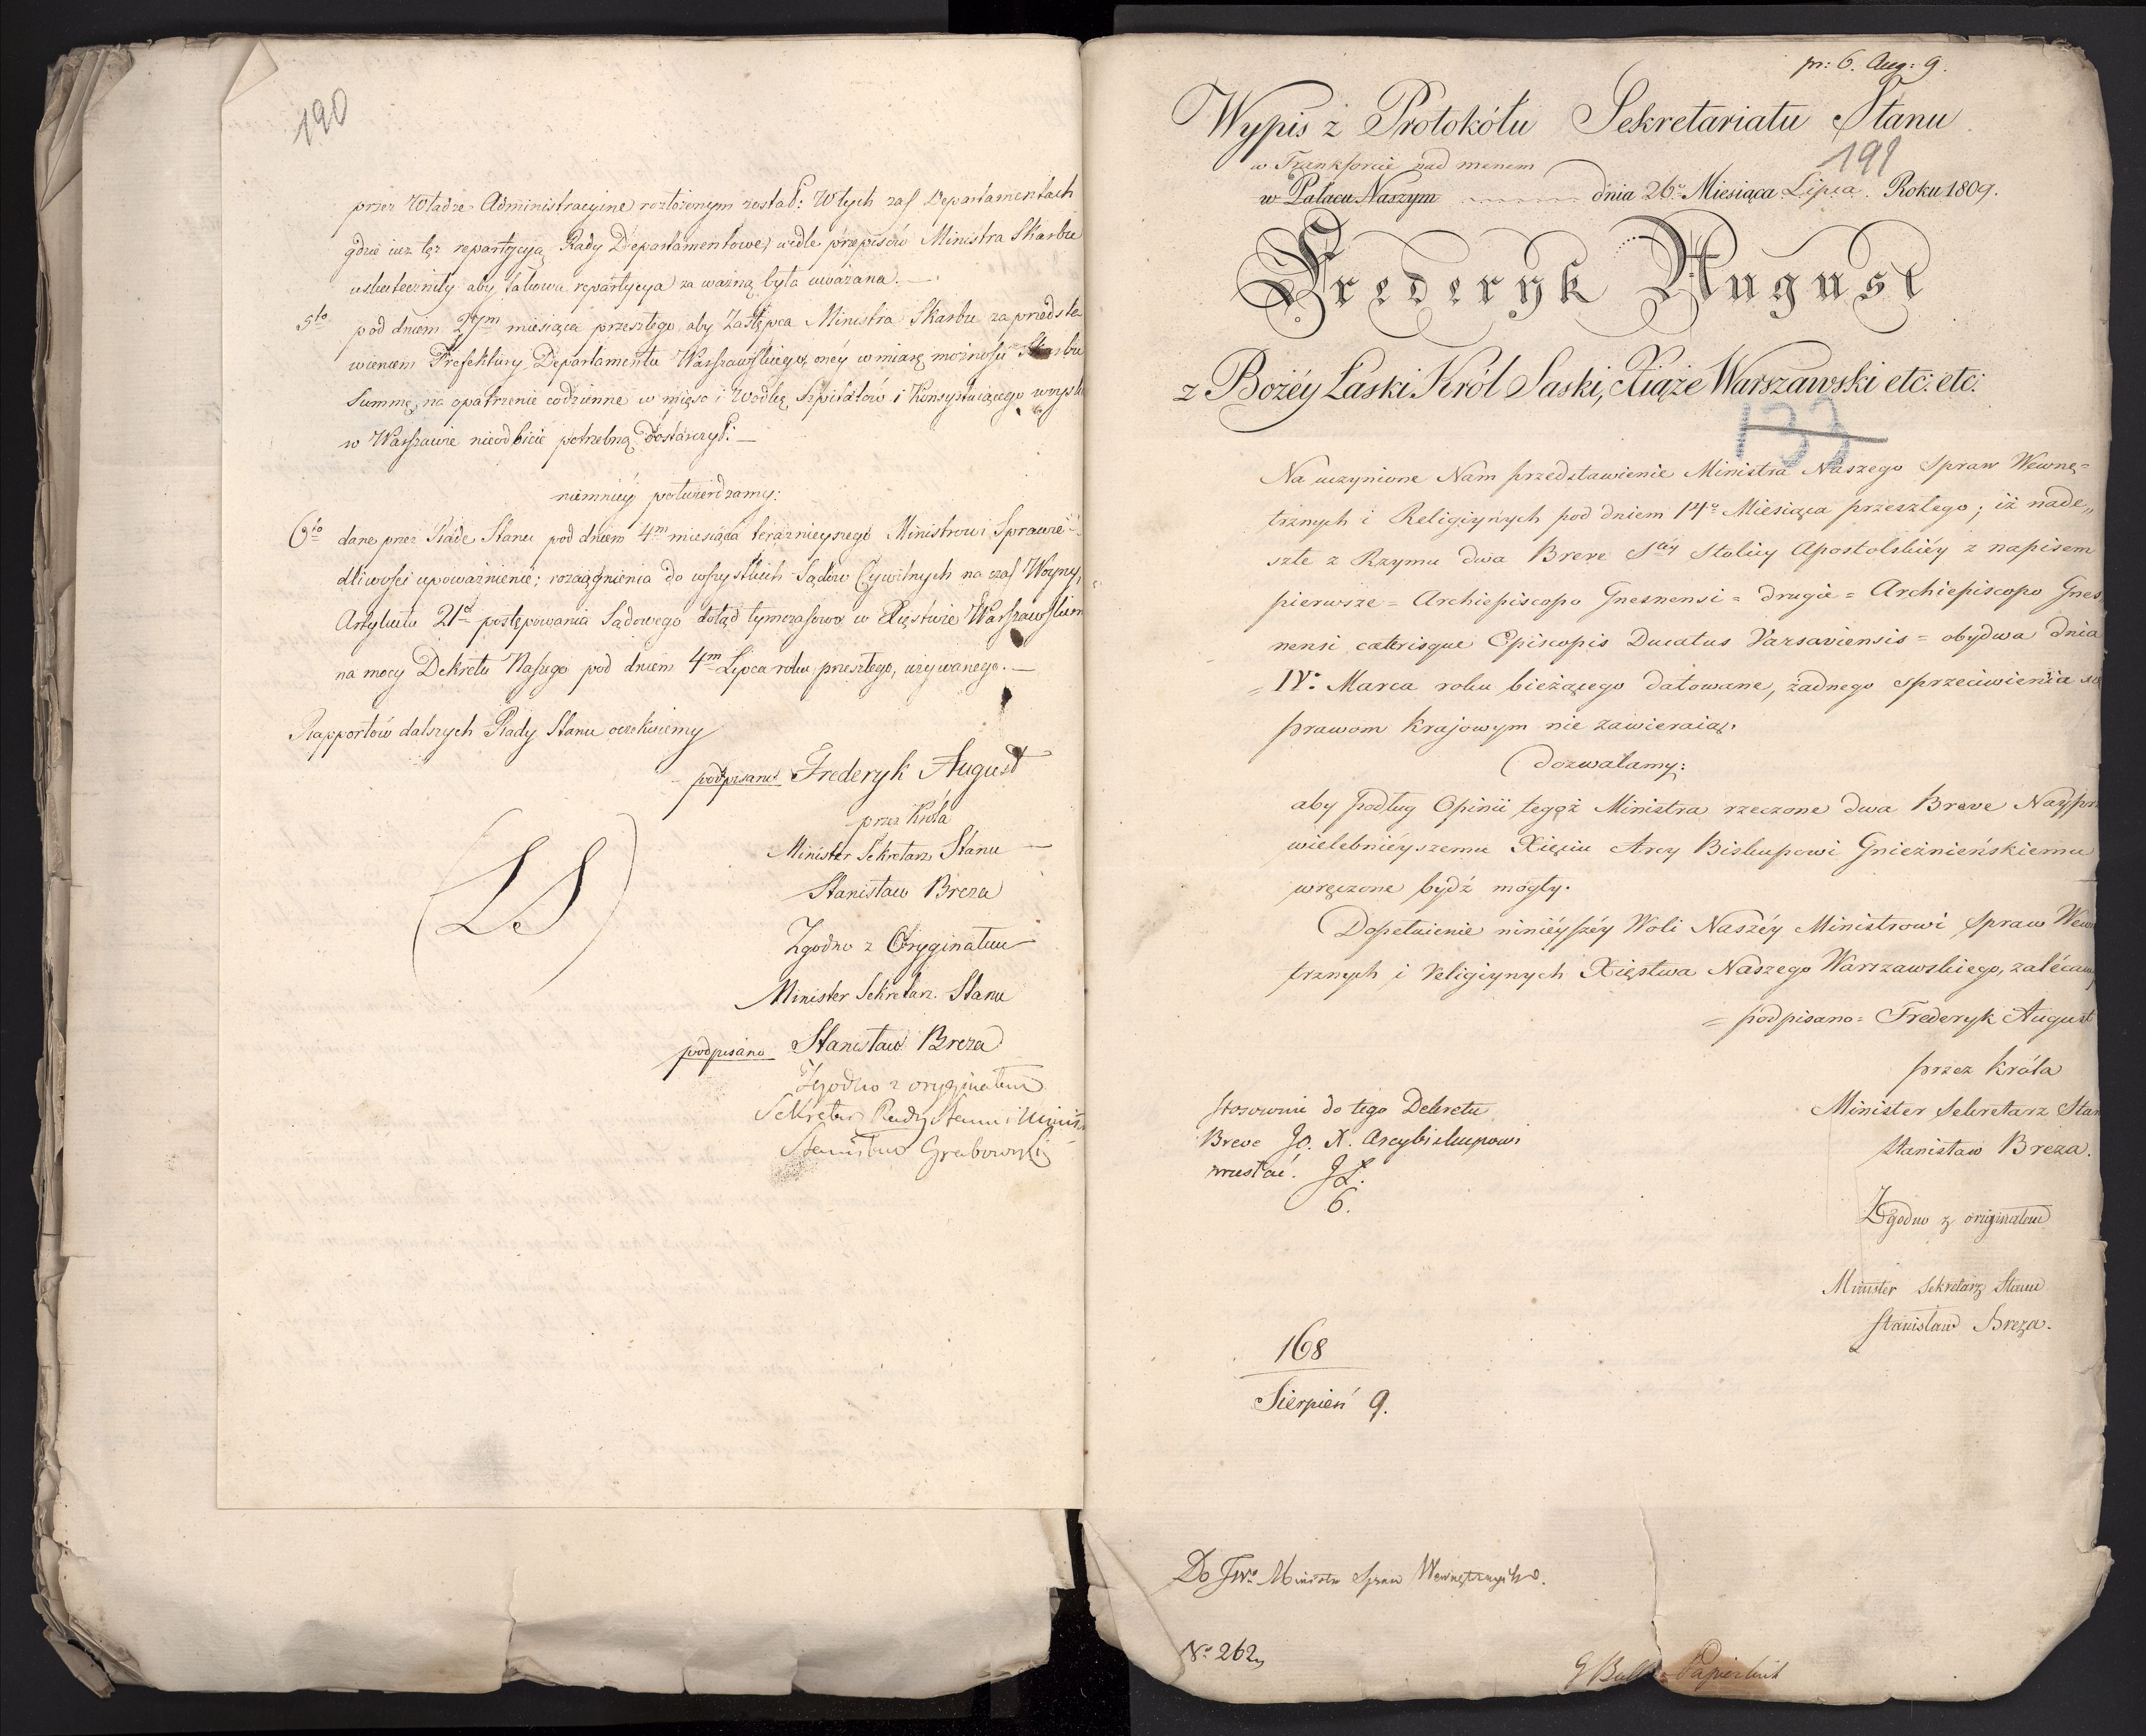 190
przez Władze Administracyine rozłożonym został: W tych zaś Departamentach
gdzie iuż też repartycyą Rady Departamentowe wedle przepisów Ministra Skarbu
uskuteczniły aby takowa repartycya za ważną była uważana. —
5to pod dniem 27m miesiąca przeszłego, aby Zastępca Ministra Skarbu za przedsta
wieniem Prefektury Departamentu Warszawskiego, oney w miarę możności Skarbu
Summę, na opatrzenie codzienne w mięso i Wodkę Szpitalów i Konsystuiącego woyska
w Warszawie nieodbicie potrzebną dostarczył: —
niemniéy potwierdzamy:
6to dane przez Radę Stanu pod dniem 4m miesiąca teraznieyszego Ministrowi Sprawie=
dliwości upoważnienie; rozciągnienia do wszystkich Sądów Cywilnych na czas Woyny,
Artykułu 21o postępowania Sądowego dotąd tymczasowo w Xięstwie Warszawskiem
na mocy Dekretu Naszego pod dniem 4m Lipca roku przeszłego, używanego. —
Rapportów dalszych Rady Stanu oczekuiemy
podpisano Frederyk August
przez Króla
Minister Sekretarz Stanu —
Stanisław Breza
(LS)
Zgodno z Oryginałem
Minister Sekretarz Stanu
podpisano Stanisław Breza
Zgodno z oryginałem
Sekretarz Rady Stanu i Minis
Stanisław Grabowski
pr: 6. Aug: 9.
Wypis z Protokółu Sekretariatu Stanu
191
w Frankforcie nad menem
w Pałacu Naszym dnia 26o Miesiąca Lipca. Roku 1809.
Frederyk August
z Bożéy Łaski Król Saski, Xiąże Warszawski etc: etc:
133
Na uczynione Nam przedstawienie Ministra Naszego Spraw Wewnę=
trznych i Religiynych pod dniem 14o Miesiąca przeszłego; iż nade„
szłe z Rzymu dwa Breve Stéy Stolicy Apostolskiéy z napisem
pierwsze = Archiepiscopo Gnesnensi = drugie = Archiepiscopo Gnes
nensi caterisque Episcopis Ducatus Varsaviensis = obydwa dnia
= IV: Marca roku bieżącego datowane, żadnego sprzeciwienia się
prawom Krajowym nie zawieraią,
dozwalamy:
aby podług Opinii tegoż Ministra rzeczone dwa Breve Nayprze
wielebnieyszemu Xięciu Arcy Biskupowi Gnieźnieńskiemu
wręczone bydź mogły.
Dopełnienie ninieyszéy Woli Naszéy Ministrowi Spraw Wewn
trznych i Religiynych Xięstwa Naszego Warszawskiego, zalécamy
= podpisano = Frederyk August
przez Króla
Minister Sekretarz Stan
Stanisław Breza.
Stosownie do tego Dekretu
Breve Jo. X. Arcybiskupowi
przesłać. JL.
6.
Zgodno z originałem
Minister Sekretarz Stanu
Stanisław Breza.
168
Sierpień 9.
Do JWo Ministra Spraw Wewnętrznych.
No 262